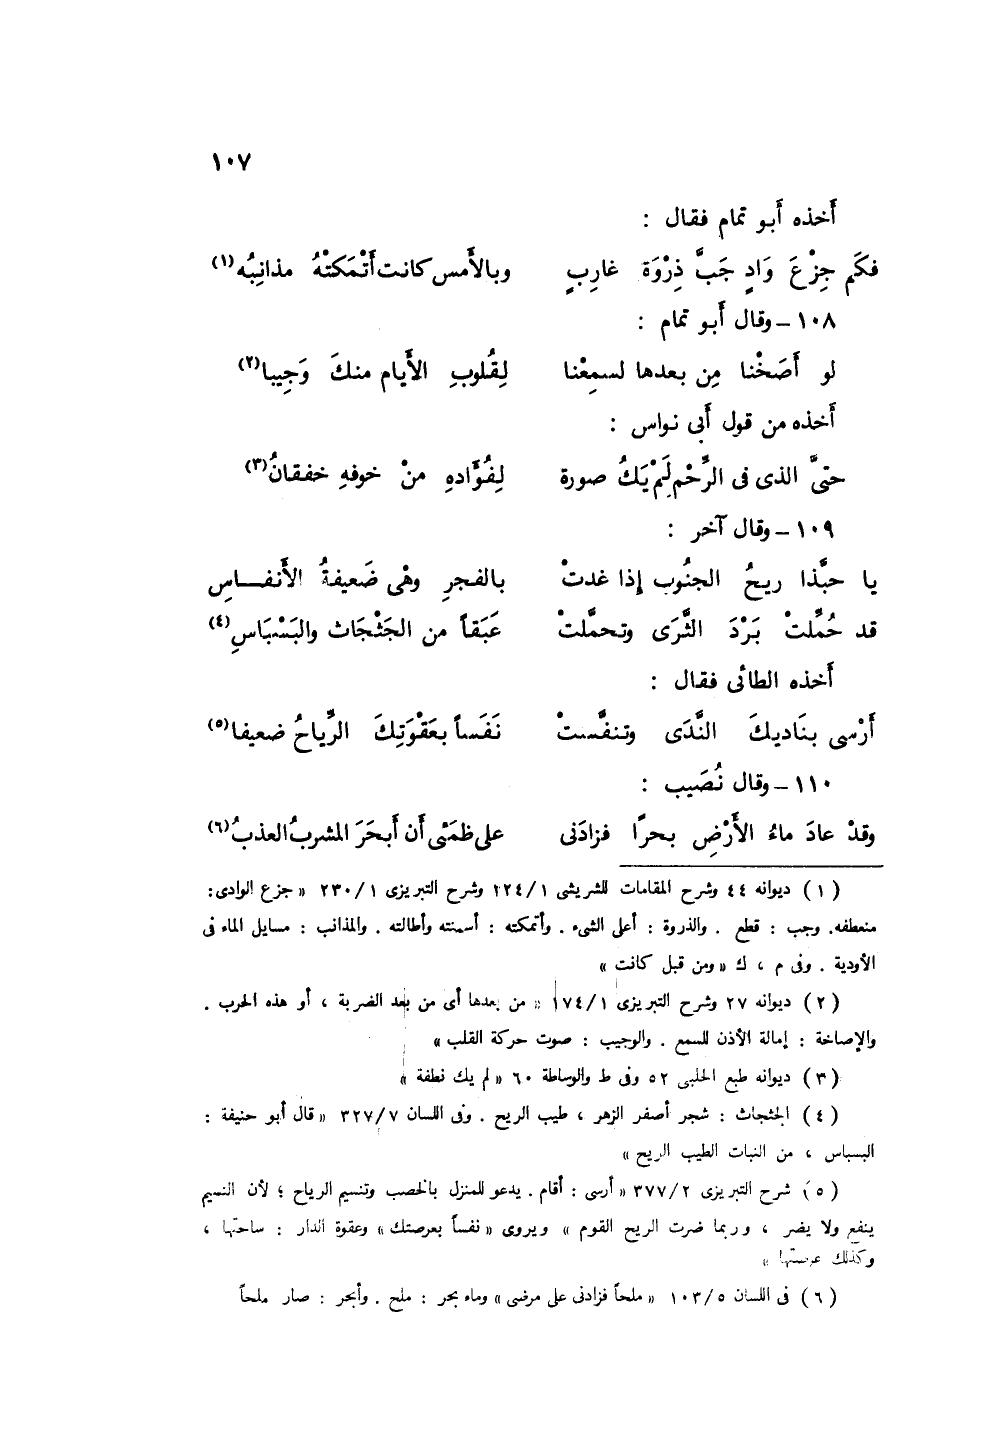 ١٠٧
أَخذه أَبو تمام فقال :
فكَم جِزْعَ وَادٍ جَبَّ ذِرْوَة غارِبٍ وبالأَمس كانت أَتْمَكتْهُ مذانِبُه(١)
١٠٨ – وقال أَبو تمام :
لو أَصَخْنا مِن بعدها لسمِعْنا لِقُلوبِ الأَيام منكَ وَجِيبا(٢)
أَخذه من قول أَبى نواس :
حتىَّ الذى فى الرَّحْم لَمْ يَكُ صورة لِفُؤَادهِ منْ خوفهِ خفقانُ(٣)
١٠٩ – وقال آخر :
يا حبَّذا ريحُ الجنُوب إذا غدتْ بالفجرِ وهْى ضَعيفةُ الأَنفـاسِ
قد حُمِّلتْ بَرْدَ الثَّرَى وتحمَّلتْ عَبَقاً من الجَثْجَاث والبَسْبَاسِ(٤)
أَخذه الطائى فقال :
أَرْسى بنَاديكَ النَّدَى وتنفَّستْ نَفَساً بعَقْوَتِكَ الرِّياحُ ضعيفا(٥)
١١٠ – وقال نُصَيب :
وقدْ عادَ ماءُ الأَرْضِ بحرًا فزادَنى على ظمَئى أَن أَبحَرَ المشربُ العذبُ(٦)
(١) ديوانه ٤٤ وشرح المقامات للشريشى ١/‏٢٢٤ وشرح التبريزى ١/‏٢٣٠ « جزع الوادى :
منعطفه. وجب : قطع . والذروة : أعلى الشىء . وأتمكته : أسمنته وأطالته . والمذانب : مسايل الماء فى
الأودية . وفى م ، ك « ومن قبل كانت »
(٢) ديوانه ٢٧ وشرح التبريزى ١/‏١٧٤ « من بعدها أى من بعد الضربة ، أو هذه الحرب .
والإصاخة : إمالة الأذن للسمع . والوجيب : صوت حركة القلب »
(٣) ديوانه طبع الحلبى ٥٢ وفى ط والوساطة ٦٠ « لم يك نطفة »
(٤) الجثجاث : شجر أصفر الزهر ، طيب الريح . وفى اللسان ٧/‏٣٢٧ « قال أبو حنيفة :
البسباس ، من النبات الطيب الريح »
(٥) شرح التبريزى ٢/‏٣٧٧ « أرسى : أقام . يدعو للمنزل بالخصب وتنسيم الرياح ؛ لأن النسيم
ينفع ولا يضر ، وربما ضرت الريح القوم » ويروى « نفساً بعرصتك » وعقوة الدار : ساحتها ،
وكذلك عرصتها »
(٦) فى اللسان ٥/‏١٠٣ « ملحاً فزادنى على مرضى » وماء بحر : ملح . وأبحر : صار ملحاً